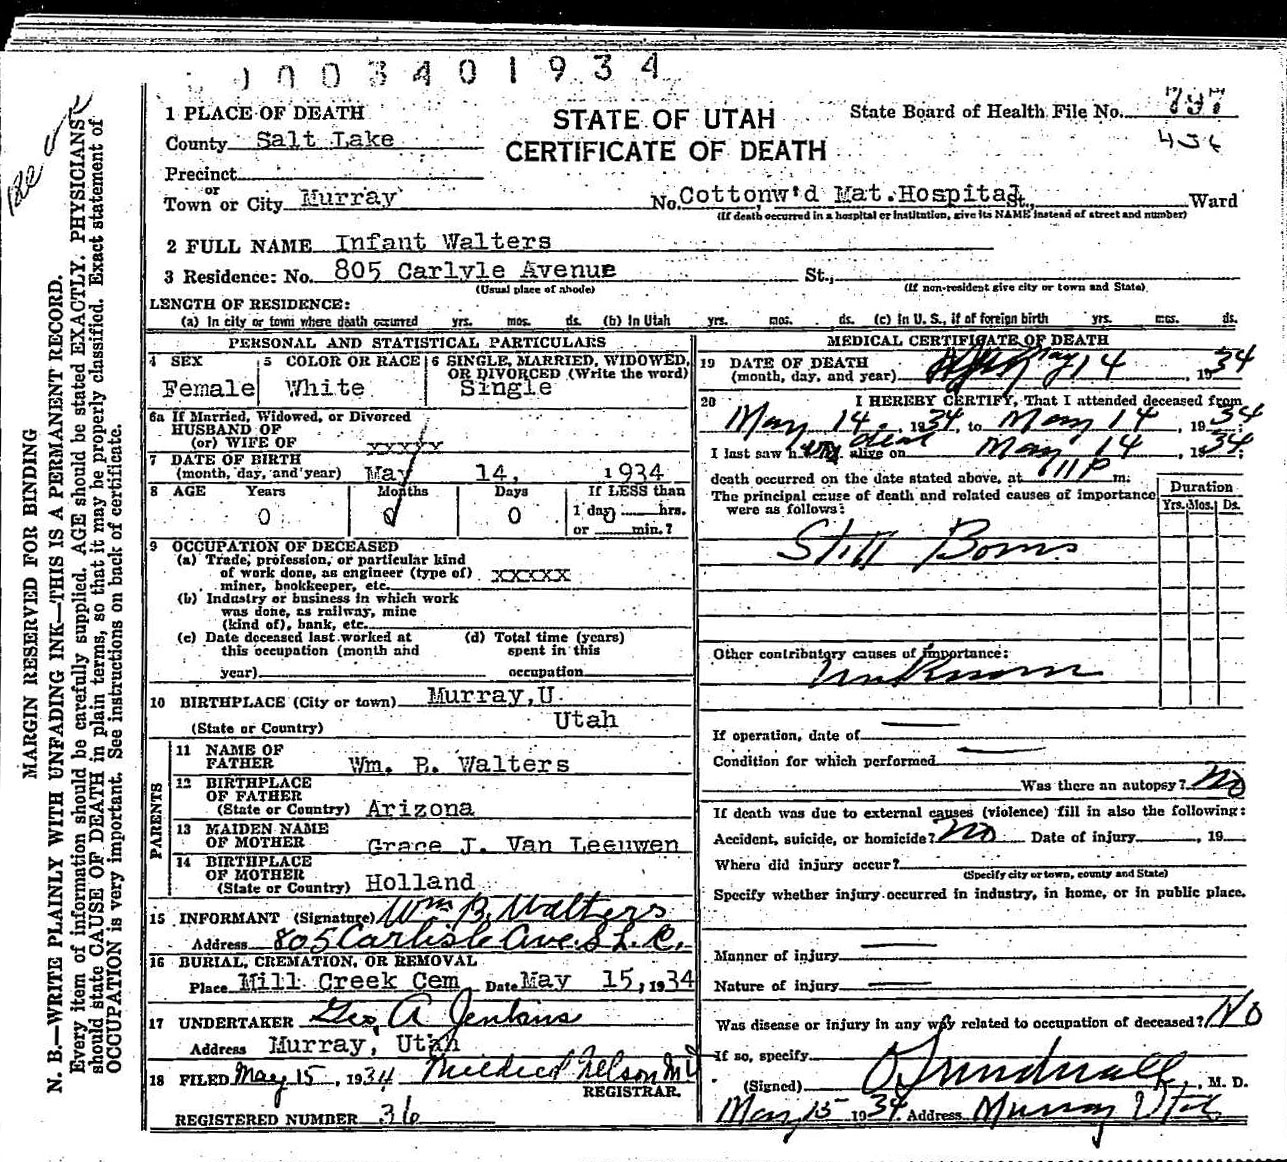 0003401934
1 PLACE OF DEATH
STATE OF UTAH
CERTIFICATE OF DEATH
State Board of Health File No. 797
436
County Salt Lake
Precinct
or
Town or City Murray
No. Cottonw'd Mat. Hospital St., Ward
(If death occurred in a hospital or institution, give its NAME instead of street and number)
2 FULL NAME Infant Walters
3 Residence: No. 805 Carlyle Avenue St.,
(Usual place of abode) (If non-resident give city or town and State)
LENGTH OF RESIDENCE:
(a) In city or town where death occurred yrs. mos. ds. (b) In Utah yrs. mos. ds. (c) In U. S., if of foreign birth yrs. mos. ds.
PERSONAL AND STATISTICAL PARTICULARS
4 SEX 5 COLOR OR RACE 6 SINGLE, MARRIED, WIDOWED,
OR DIVORCED (Write the word)
Female White Single
6a If Married, Widowed, or Divorced
HUSBAND OF
(or) WIFE OF xxxxx
7 DATE OF BIRTH
(month, day, and year) May 14, 1934
8 AGE Years Months Days If LESS than
0 0 0 1 day 0 hrs.
or min.?
9 OCCUPATION OF DECEASED
(a) Trade, profession, or particular kind
of work done, as engineer (type of)
miner, bookkeeper, etc. XXXXX
(b) Industry or business in which work
was done, as railway, mine
(kind of), bank, etc.
(c) Date deceased last worked at (d) Total time (years)
this occupation (month and spent in this
year) occupation
10 BIRTHPLACE (City or town) Murray, U.
(State or Country) Utah
PARENTS
11 NAME OF
FATHER Wm. B. Walters
12 BIRTHPLACE
OF FATHER
(State or Country) Arizona
13 MAIDEN NAME
OF MOTHER Grace J. Van Leeuwen
14 BIRTHPLACE
OF MOTHER
(State or Country) Holland
15 INFORMANT (Signature) Wm B. Walters
Address 805 Carlisle Ave. S. L. C.
16 BURIAL, CREMATION, OR REMOVAL
Place Mill Creek Cem Date May 15, 1934
17 UNDERTAKER Geo. A Jenkins
Address Murray, Utah
18 FILED May 15, 1934 Mildred Nelson
REGISTRAR.
REGISTERED NUMBER 36
MEDICAL CERTIFICATE OF DEATH
19 DATE OF DEATH
(month, day, and year) May 14, 1934
20 I HEREBY CERTIFY, That I attended deceased from
May 14, 1934, to May 14, 1934;
I last saw h dead alive on May 14, 1934;
death occurred on the date stated above, at 111 P m.
The principal cause of death and related causes of importance
were as follows:
Duration
Yrs. Mos. Ds.
Still Born
Other contributory causes of importance:
Unknown
If operation, date of
Condition for which performed
Was there an autopsy? No
If death was due to external causes (violence) fill in also the following:
Accident, suicide, or homicide? No Date of injury , 19
Where did injury occur?
(Specify city or town, county and State)
Specify whether injury occurred in industry, in home, or in public place.
Manner of injury
Nature of injury
Was disease or injury in any way related to occupation of deceased? No
If so, specify
(Signed) O Sundwall, M. D.
May 15 1934 Address Murray Utah
MARGIN RESERVED FOR BINDING
N. B.—WRITE PLAINLY WITH UNFADING INK—THIS IS A PERMANENT RECORD.
Every item of information should be carefully supplied. AGE should be stated EXACTLY. PHYSICIANS
should state CAUSE OF DEATH in plain terms, so that it may be properly classified. Exact statement of
OCCUPATION is very important. See instructions on back of certificate.